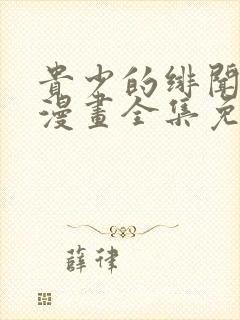 貴少的緋聞
漫畫全集免
薛律